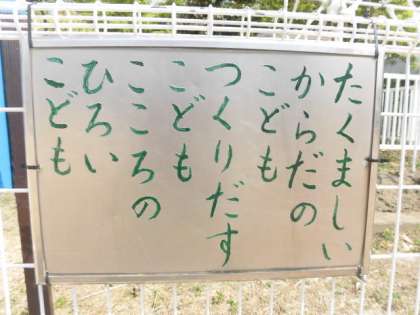 たくましい
からだの
こども
つくりだす
こども
こころの
ひろい
こども